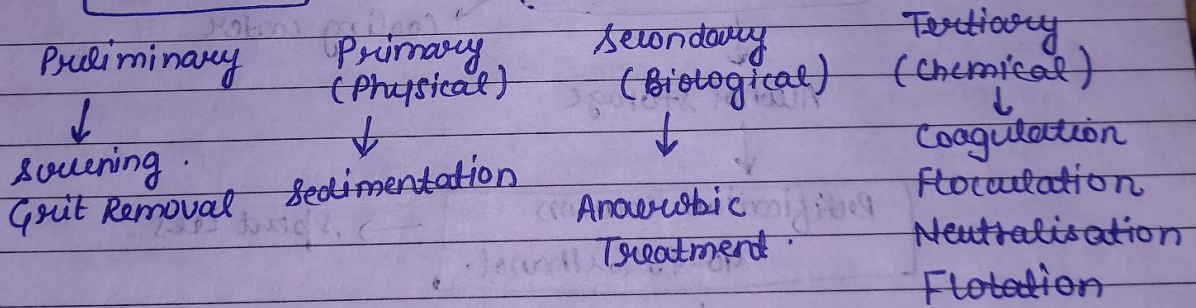 Preliminary
Screening.
Grit Removal
Primary
(Physical)
Sedimentation
Secondary
(Biological)
Anaerobic
Treatment.
Tertiary
(Chemical)
Coagulation
Flocculation
Neutralisation
Flotation